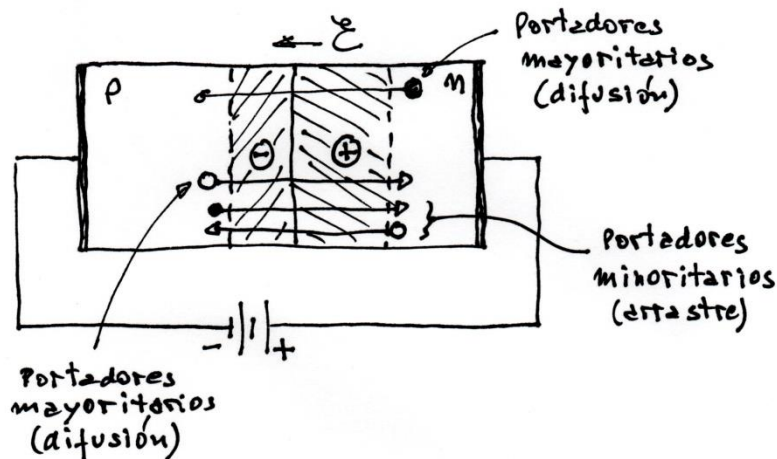 ← ℰ
Portadores
mayoritarios
(difusión)
p
n
⊖
⊕
Portadores
minoritarios
(arrastre)
-
+
Portadores
mayoritarios
(difusión)